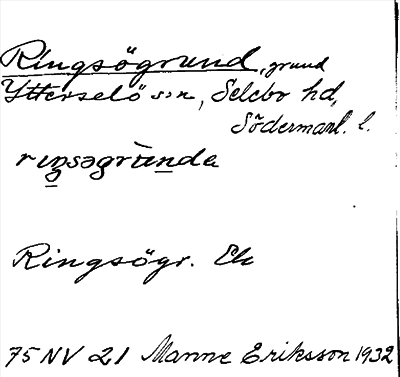 Ringsögrund, grund
Ytterselö sn, Selebo hd,
Södermanl. l.
rıŋsəgrùnda
Ringsögr. Ek
75 NV 21 Manne Eriksson 1932